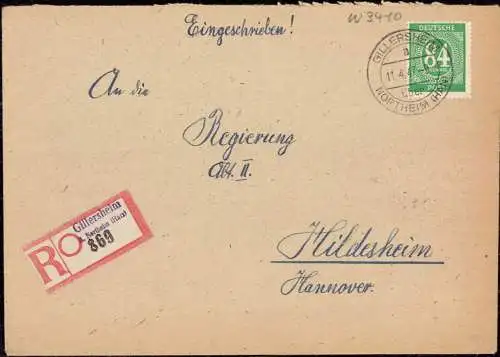 W 3410
Eingeschrieben!
DEUTSCHE
84
POST
GILLERSHEIM
a
11.4.
über
NORTHEIM (HAN)
An die
Regierung
Abt. II.
Hildesheim
Hannover.
R
Gillersheim
über Northeim (Han)
869